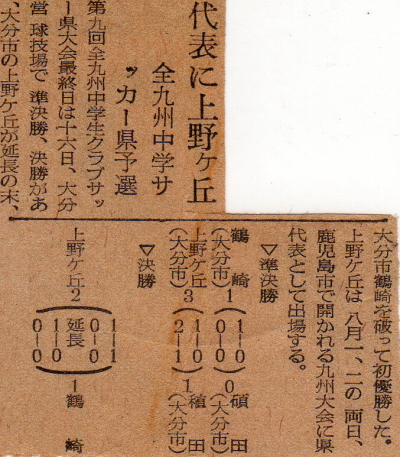 代表に上野ヶ丘
全九州中学サ
ッカー県予選
第九回全九州中学生クラブサッ
ー県大会最終日は十六日、大分
営 球技場で 準決勝、決勝があ
、大分市の上野ケ丘が延長の末、
大分市鶴崎を破って初優勝した。
上野ケ丘は八月一、二の両日、
鹿児島市で開かれる九州大会に県
代表として出場する。
▽準決勝
鶴崎1(1―0 0―0)0碩田
(大分市) (大分市)
上野ケ丘3(1―0 2―1)1稙田
(大分市) (大分市)
▽決勝
上野ケ丘2(1―1 0―0 延長 1―0 0―0)1鶴崎